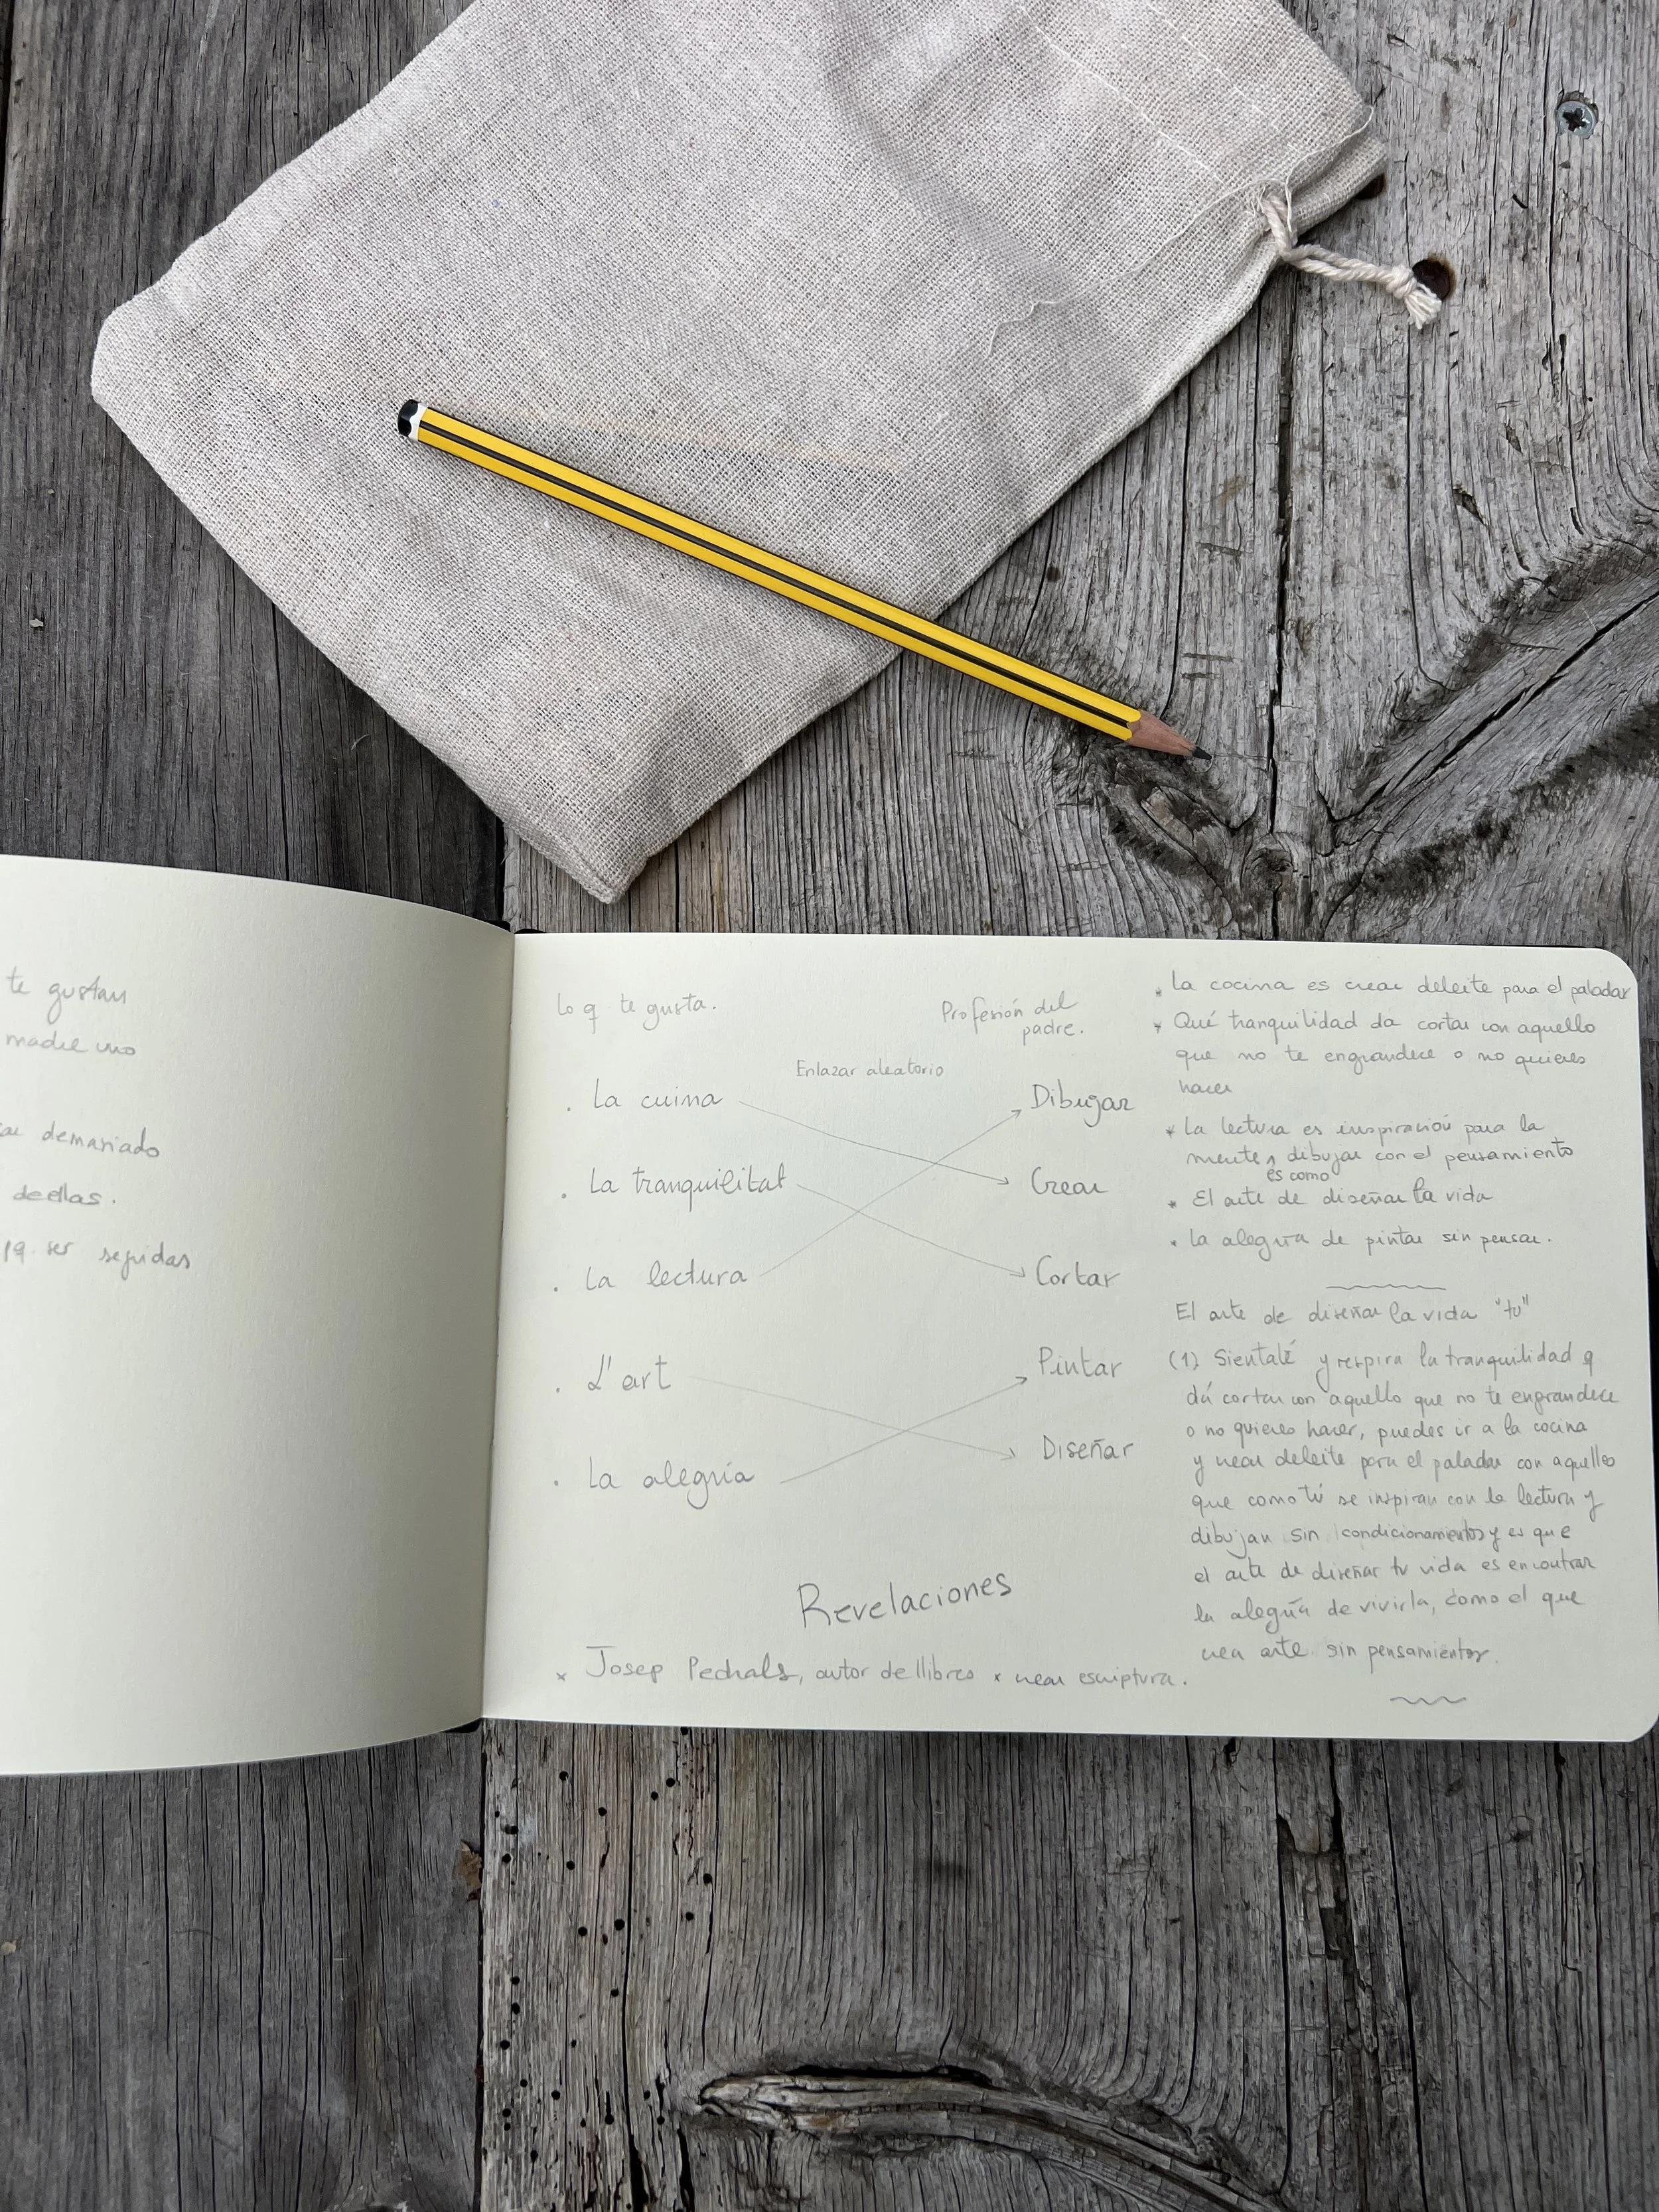 te gustan
madre uno
demasiado
de ellas.
ser seguidas
Lo q te gusta.
Profesión del
padre.
Enlazar aleatorio
. La cuina
Dibujar
. La tranquilitat
Crear
. La lectura
Cortar
. L'art
Pintar
. La alegría
Diseñar
Revelaciones
* Josep Pedrals, autor de llibres * crear escriptura.
* La cocina es crear deleite para el paladar
* Qué tranquilidad da cortar con aquello
que no te engrandece o no quieres
hacer
* La lectura es inspiración para la
mente, dibujar con el pensamiento
es como
* El arte de diseñar la vida
* La alegría de pintar sin pensar.
El arte de diseñar la vida "tu"
(1) Sientaté y respira la tranquilidad q
dá cortar con aquello que no te engrandece
o no quieres hacer, puedes ir a la cocina
y crear deleite para el paladar con aquellos
que como tú se inspiran con la lectura y
dibujan sin condicionamientos y es que
el arte de diseñar tu vida es encontrar
la alegría de vivirla, como el que
crea arte sin pensamientos.